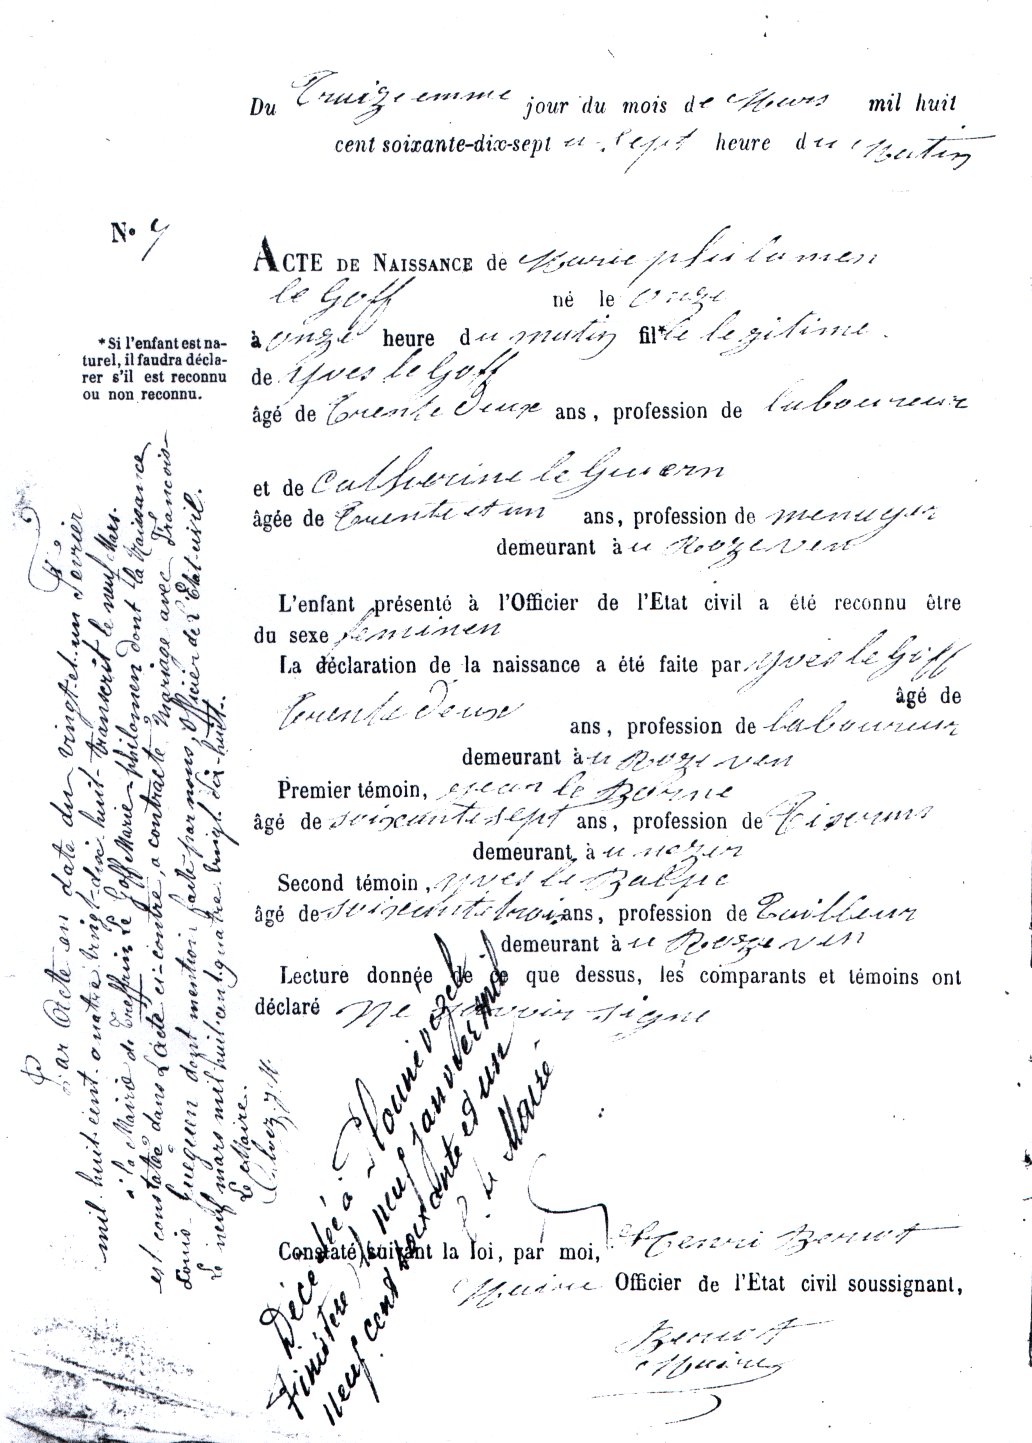 Du Truizeemme jour du mois de Mars mil huit
cent soixante-dix-sept a sept heure du Matin
N°
ACTE DE NAISSANCE de Marie philamen
le Goff né le onze
à onze heure du matin fil*le legitime.
*Si l'enfant est na-
turel, il faudra décla-
rer s'il est reconnu
ou non reconnu.
de Yves le Goff
âgé de trente deux ans, profession de laboureur
et de Catherine le Guern
âgée de trente et un ans, profession de menager
demeurant à u Rozeven
L'enfant présenté à l'Officier de l'Etat civil a été reconnu être
du sexe feminen
La déclaration de la naissance a été faite par yves le Goff
âgé de
trente deux ans, profession de laboureur
demeurant à u Rozeven
Premier témoin, jean le Borne
âgé de soixante sept ans, profession de Tiserans
demeurant à u
Second témoin, yves le
âgé de soixante trois ans, profession de Tailleur
demeurant à u Rozeven
Lecture donnée de ce que dessus, les comparants et témoins ont
déclaré ne savoir signe
Constaté suivant la loi, par moi, Henri Benoot
Maire Officier de l'Etat civil soussignant,
Benoot
Maire
Par Acte en date du vingt-et-un Février
mil-huit-cent-quatre-vingt-dix-huit-transcrit le neuf Mars.
à la Mairie de Treffrin Le Goff Marie-philomen dont la Naissance
est constatée dans l'acte ci-contre, a contracté Mariage avec François-
Louis dont mention faite par nous, Officier de l'Etat-civil.
Le neuf mars mil huit cent quatre vingt dix-huit.
Le Maire.
Décédée à Plounévézel
Finistère le neuf janvier mil
neuf cent soixante et un
Le Maire